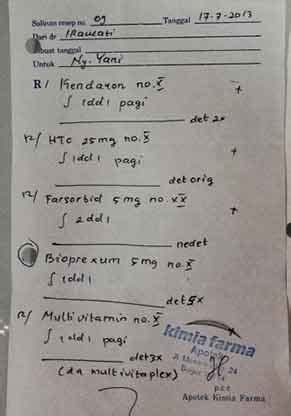 Salinan resep no. 09 Tanggal 17-7-2013
Dari dr IRawati
Dibuat tanggal
Untuk Ny. Yani
R/ Kendaron no. X
∫ 1dd1 pagi
det 2x
R/ HTC 25mg no. X
∫ 1dd1 pagi
det orig
R/ Farsorbid 5mg no. XX
∫ 2dd1
nedet
Bioprexum 5mg no. X
∫ 1dd1
R/ Multivitamin no. X
∫ 1dd1 pagi
det 3x
(da multivitaplex)
kimia farma
Apotek
24
p.c.c
Apotek Kimia Farma